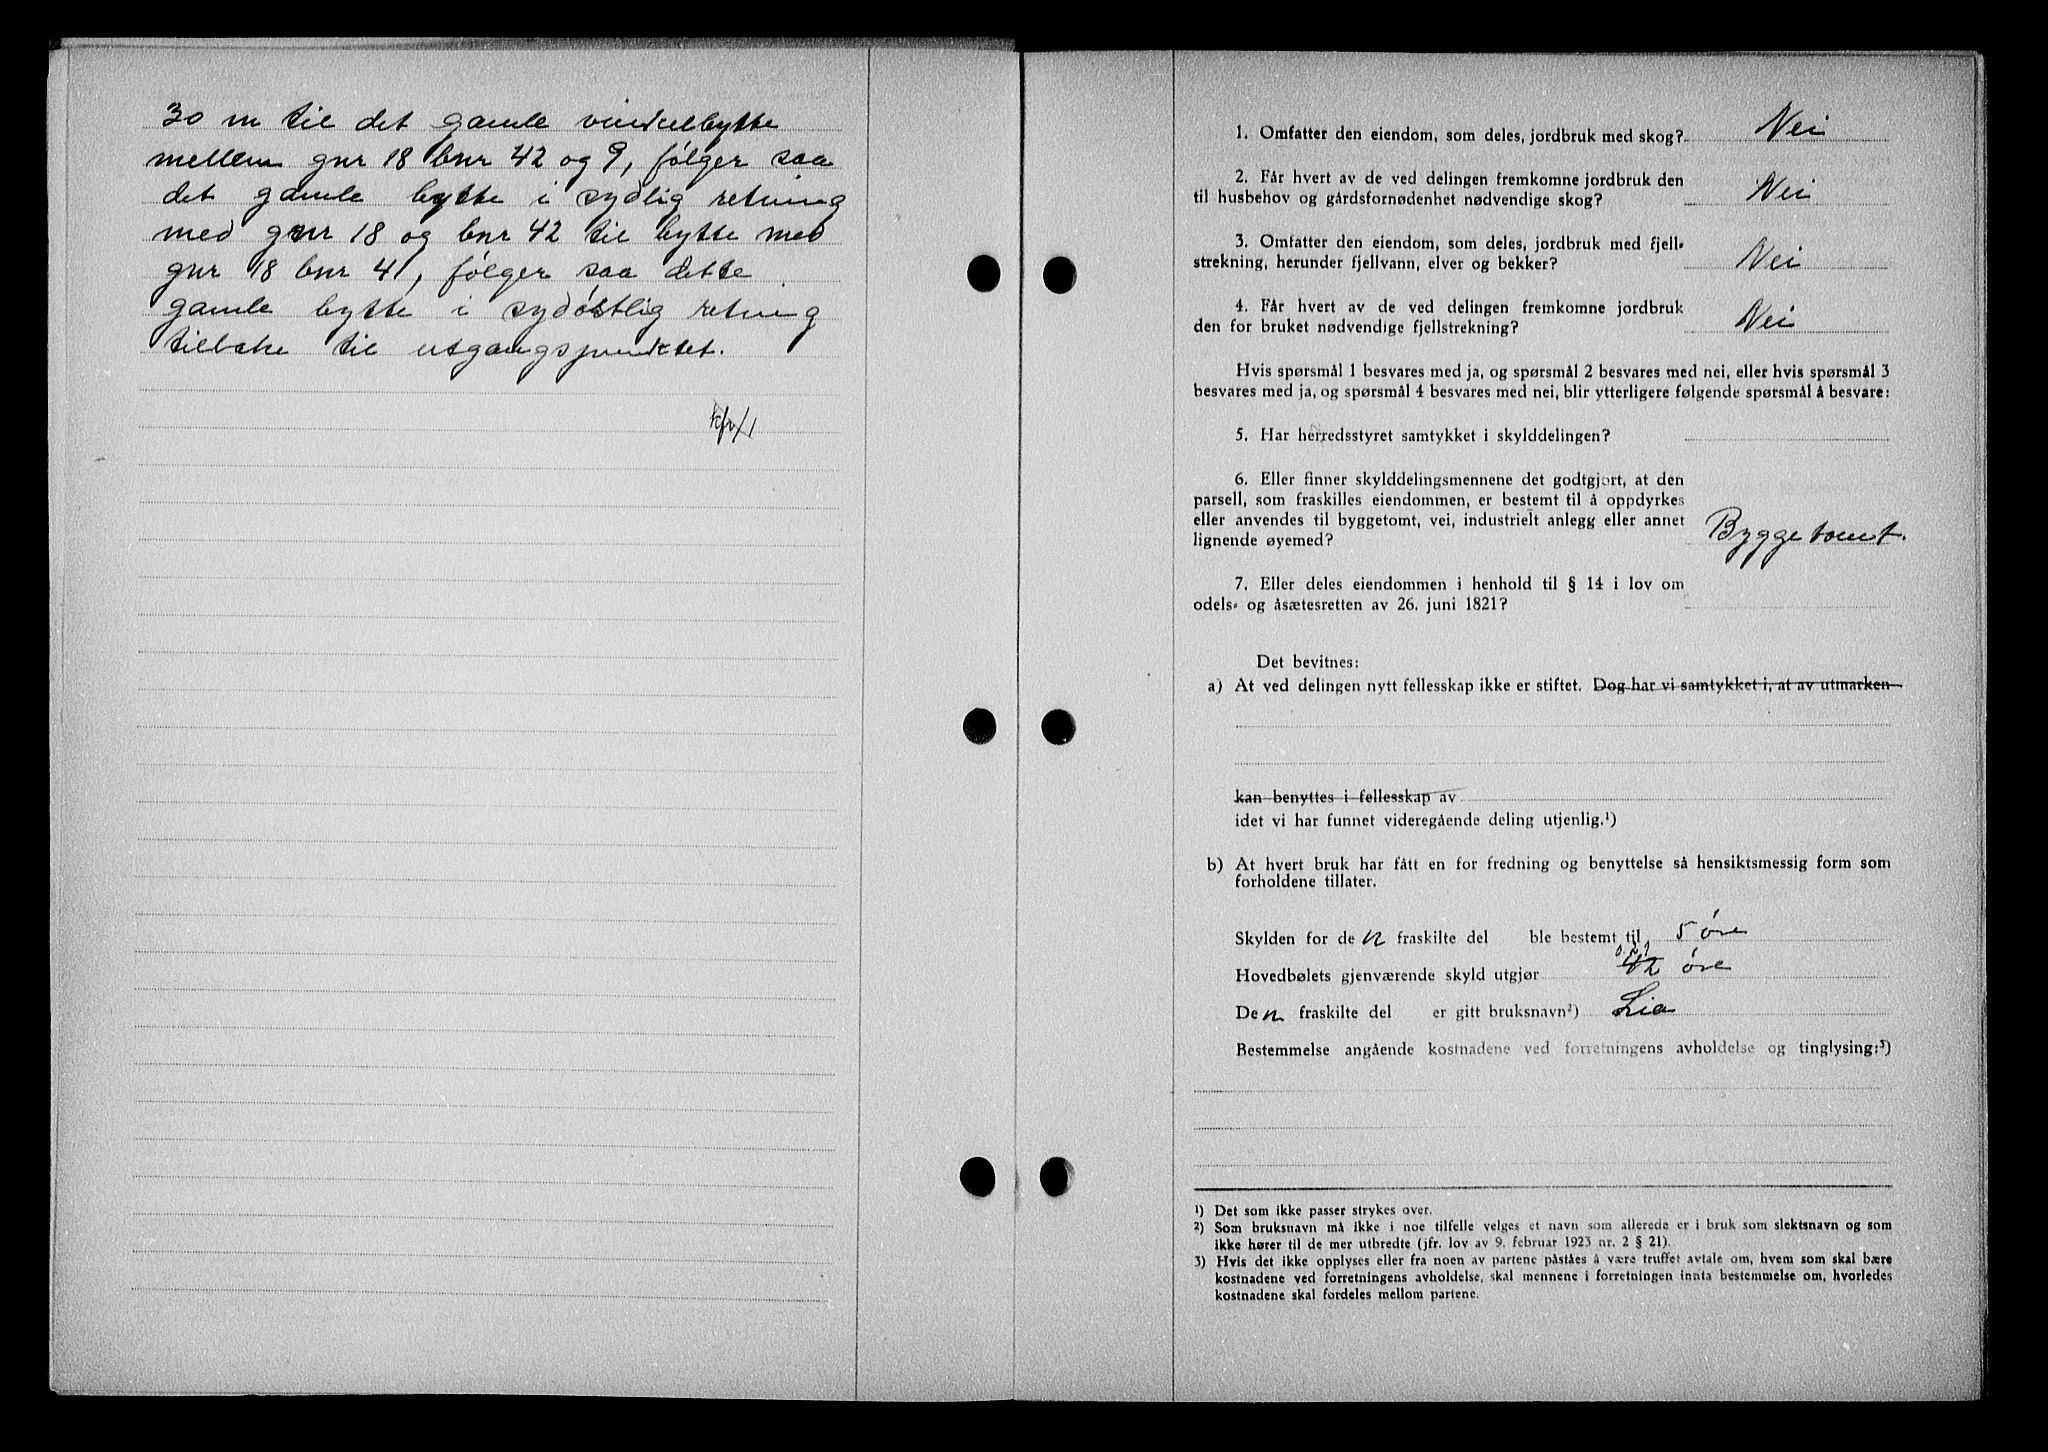 30 m til det gamle vinkelbytte
mellem gnr 18 bnr 42 og 9, følger saa
det gamle bytte i sydlig retning
med gnr 18 og bnr 42 til bytte med
gnr 18 bnr 41, følger saa dette
gamle bytte i sydöstlig retning
tilbake til utgangspunktet.
1. Omfatter den eiendom, som deles, jordbruk med skog? Nei
2. Får hvert av de ved delingen fremkomne jordbruk den
til husbehov og gårdsfornødenhet nødvendige skog? Nei
3. Omfatter den eiendom, som deles, jordbruk med fjell-
strekning, herunder fjellvann, elver og bekker? Nei
4. Får hvert av de ved delingen fremkomne jordbruk
den for bruket nødvendige fjellstrekning? Nei
Hvis spørsmål 1 besvares med ja, og spørsmål 2 besvares med nei, eller hvis spørsmål 3
besvares med ja, og spørsmål 4 besvares med nei, blir ytterligere følgende spørsmål å besvare:
5. Har herredsstyret samtykket i skylddelingen?
6. Eller finner skylddelingsmennene det godtgjort, at den
parsell, som fraskilles eiendommen, er bestemt til å oppdyrkes
eller anvendes til byggetomt, vei, industrielt anlegg eller annet
lignende øyemed? Byggetomt.
7. Eller deles eiendommen i henhold til § 14 i lov om
odels- og åsætesretten av 26. juni 1821?
Det bevitnes:
a) At ved delingen nytt fellesskap ikke er stiftet. Dog har vi samtykket i, at av utmarken
kan benyttes i fellesskap av
idet vi har funnet videregående deling utjenlig.¹)
b) At hvert bruk har fått en for fredning og benyttelse så hensiktsmessig form som
forholdene tillater.
Skylden for den fraskilte del ble bestemt til 5 øre
Hovedbølets gjenværende skyld utgjør 42 øre
Den fraskilte del er gitt bruksnavn²) Lia
Bestemmelse angående kostnadene ved forretningens avholdelse og tinglysing:³)
¹) Det som ikke passer strykes over.
²) Som bruksnavn må ikke i noe tilfelle velges et navn som allerede er i bruk som slektsnavn og som
ikke hører til de mer utbredte (jfr. lov av 9. februar 1923 nr. 2 § 21).
3) Hvis det ikke opplyses eller fra noen av partene påståes å være truffet avtale om, hvem som skal bære
kostnadene ved forretningens avholdelse, skal mennene i forretningen innta bestemmelse om, hvorledes
kostnadene skal fordeles mellom partene.